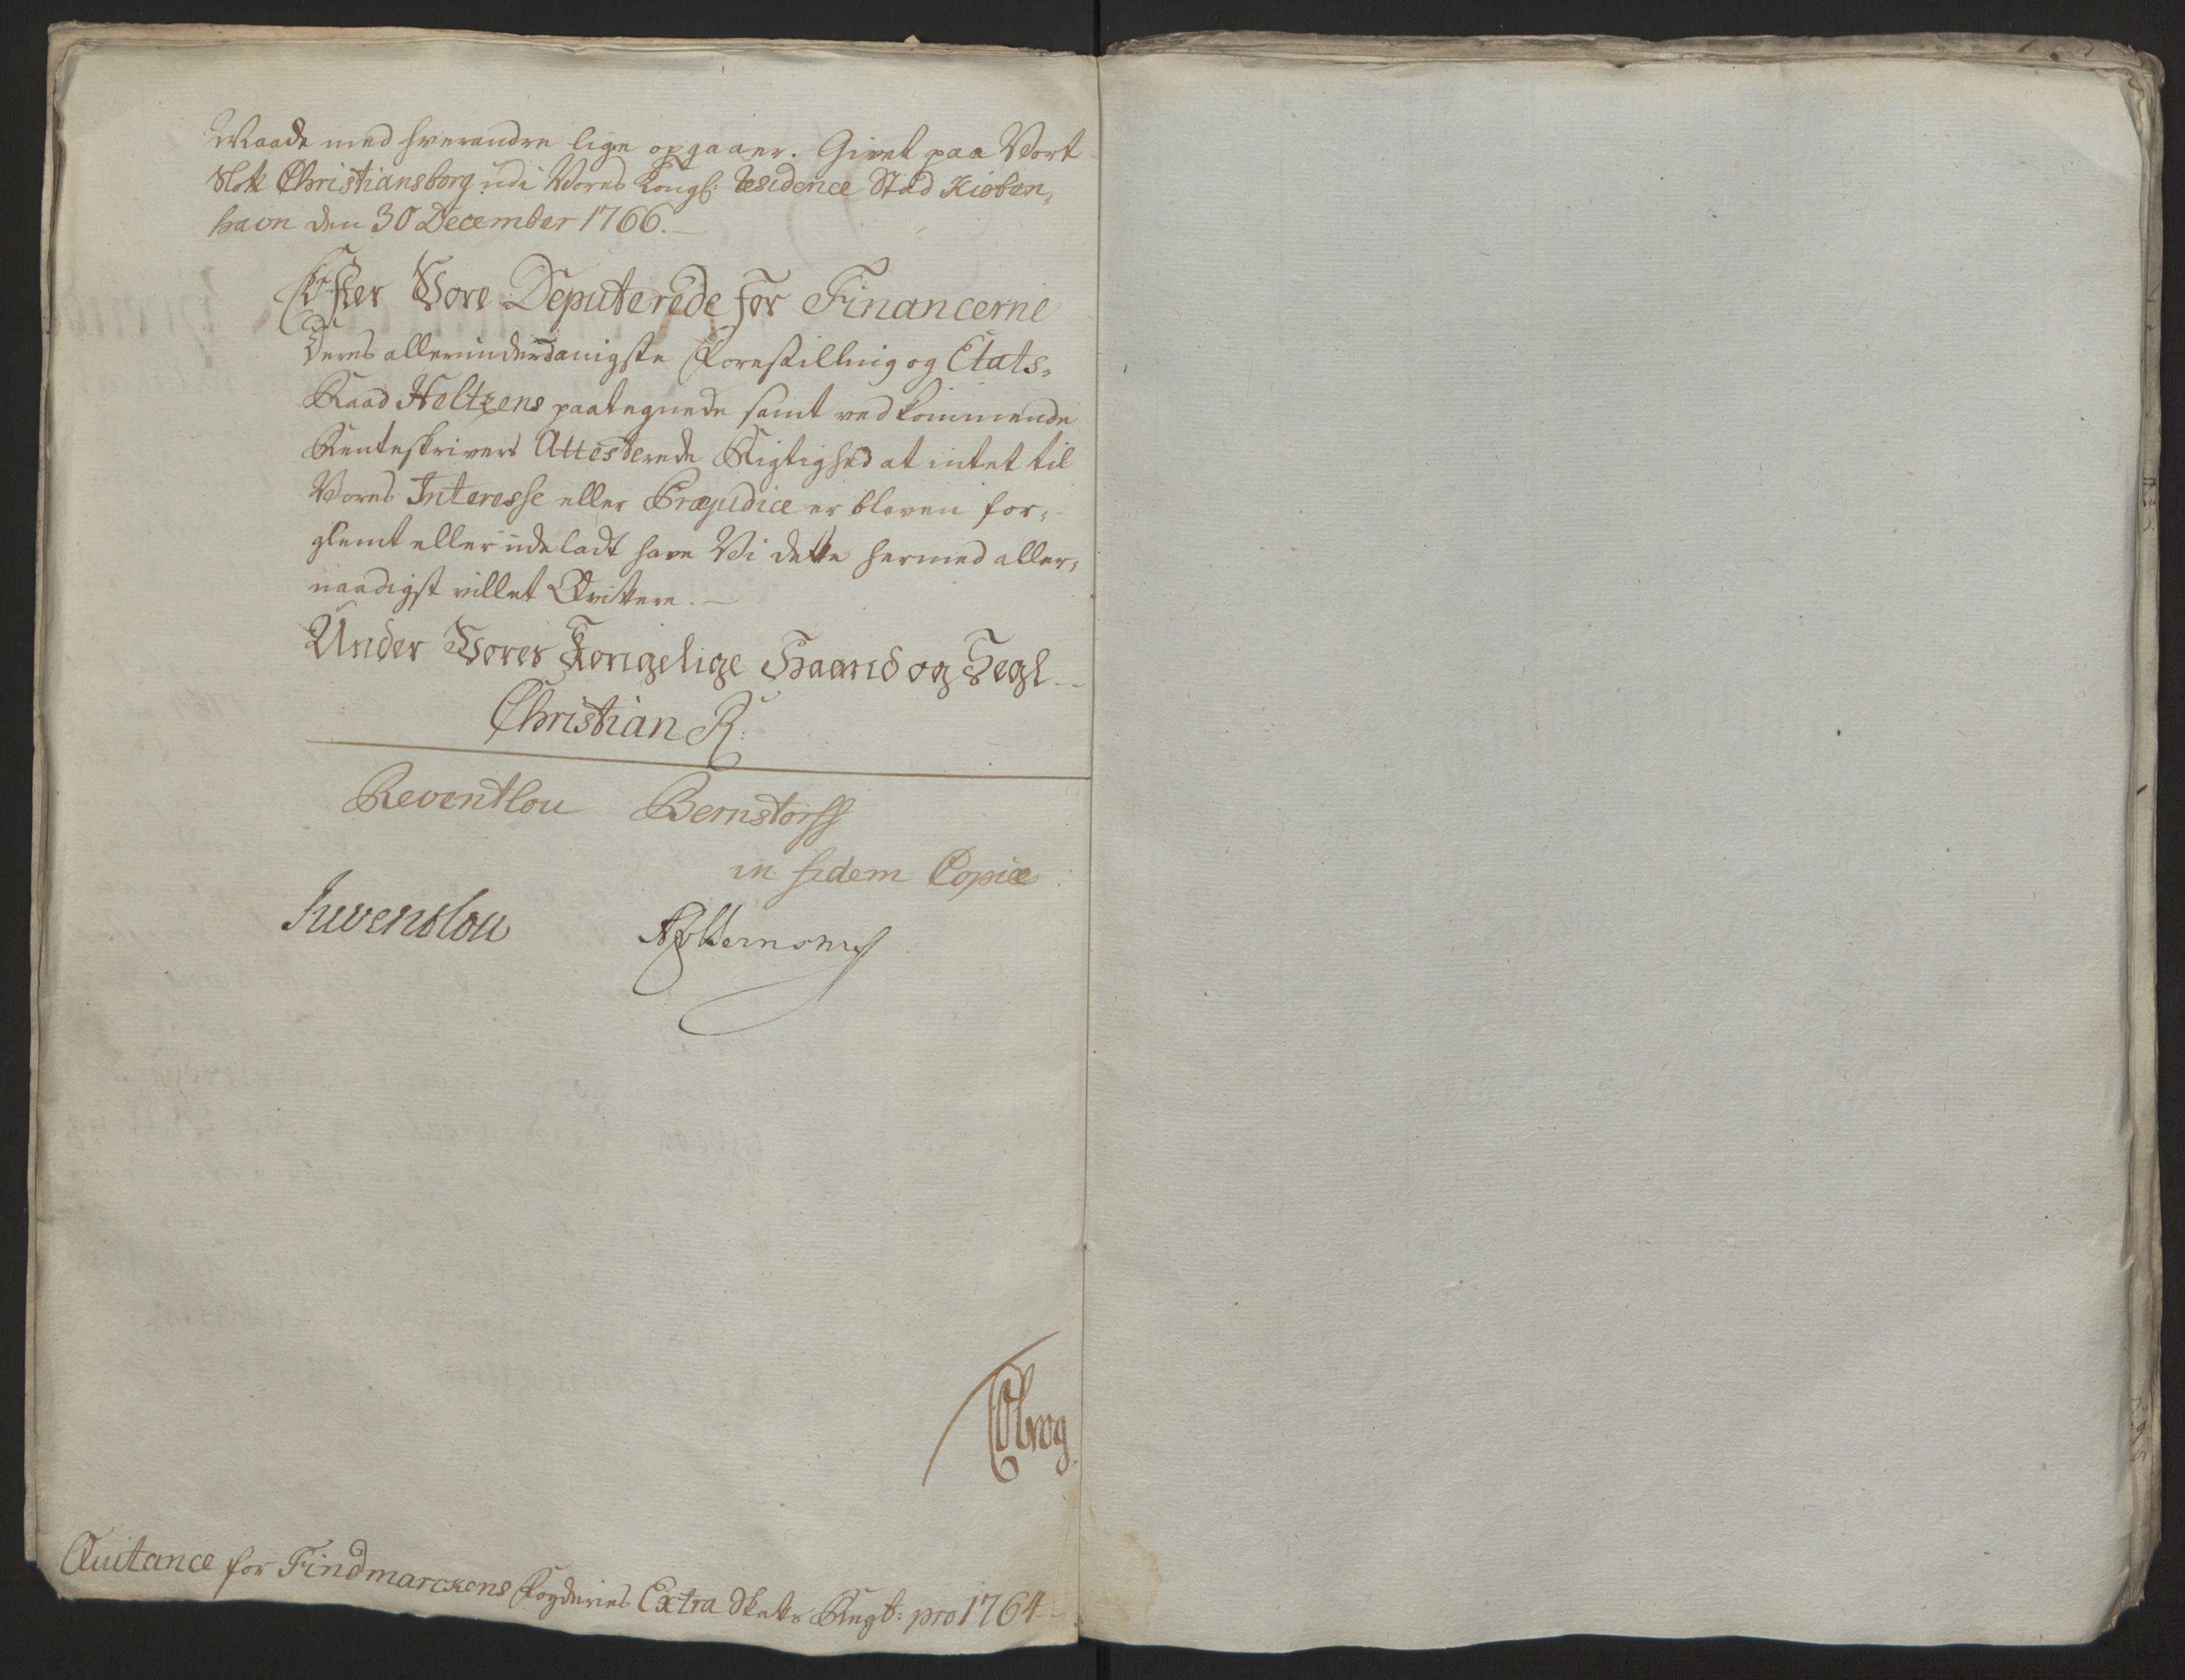 Maade med hverandre lige opgaaer. Givet paa Vort
Slott Christiansborg udi Vores Kongl: Residence Stad Kiøben,
havn den 30 December 1766.
Efter Vore Deputerede for Financerne
Deres allerunderdanigste Forestilling og Etats,
Raad Holtzens paategnede samt vedkommende
Renteskrivers Attesterede Rigtighed at intet til
Vores Interesse eller Præjudice er bleven for,
glemt eller udeladt have Vi dette hermed aller,
naadigst villet Qvittere.
Under Vores Kongelige Haand og Segl
Christian R:
Reventlou Bernstorff
in fidem Copiæ
Juvenslou
Qvitance for Findmarckens Fogderies Extra Skatts Regb: pro 1764